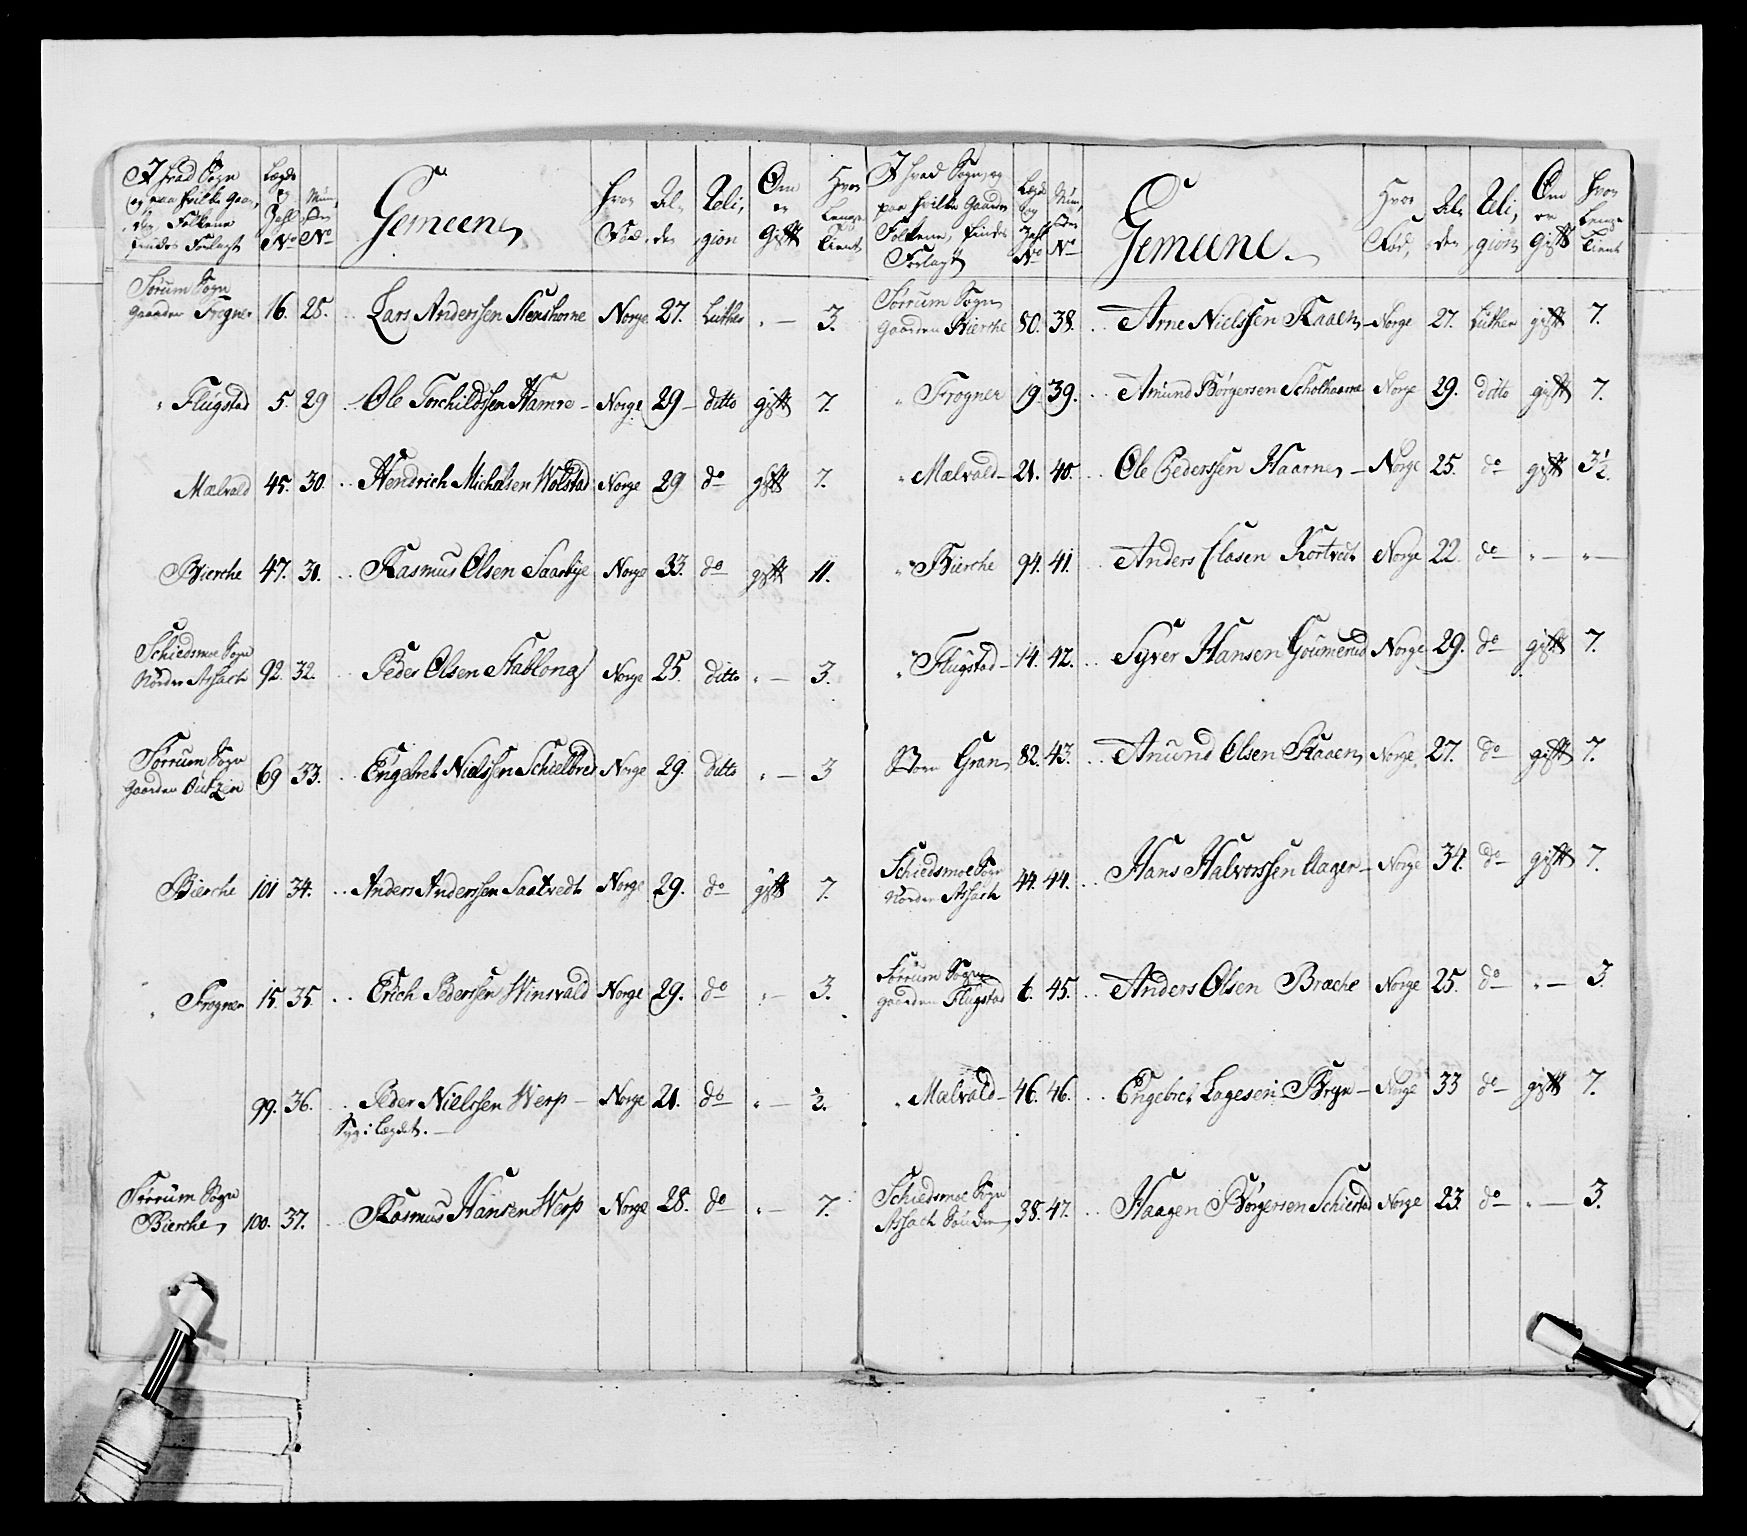 I hvad Sogn
og paa hvilke Gaar,
der, Folkene
findes Forlagt
Lægds
og
Zahl
No
Mün,
ster
No
Gemeene
Hvor
Fød.
Al,
der
Reli,
gion
Om
er
Gift
Hvor
Længe
Tient
Sørum Sogn
Gaarden Frogner 16. 28. Lars Anderssen Stenshorne Norge 27. Luther " — 3.
" Flügstad 5. 29 Ole Torchildssen Hamre - Norge 29 - ditto gift 7.
Mælvald 45. 30. Hendrich Michelsen Wolstad Norge 29 do gift 7.
Bierche 47. 31. Rasmus Olsen Saarbye Norge 33. do gift 11.
Schiedsmoe Sogn
Nørdre Assach 92. 32. Peder Olsen Stablong Norge 25. ditto " — 3.
Sørrum Sogn
Gaarden 69 33. Engebret Nielssen Schielbred Norge 29. ditto " — 3
Bierche 101 34. Anders Anderssen Saatvedt Norge 29. do gift 7.
" Frogner 15. 35. Erich Pederssen Winsvald Norge 29. do " — 3.
99. 36. Peder Nielssen Werp - Norge 21. do " — ½.
Syg i lægdet. —
Sørrum Sogn
Bierche 100. 37. Rasmus Hansen Werp Norge 28. do " — 7.
I hvad Sogn, og
paa hvilke Gaarder
Folkene, findes
Forlagt
Lægds
og
Zahl
No
Mün,
ster
No
Gemeene.
Hvor
Fød,
Al,
der
Reli,
gion
Om
er
Gift
Hvor
Længe
Tient
Sørrum Sogn
Gaarden Bierche 80. 38. Arne Nielssen Kaalen - Norge 27. Luther gift 7.
" Frogner 19. 39. Amünd Børgersen Scholhaarne Norge 29. ditto gift 7.
" Mælvald - 21. 40. Ole Pederssen Haarne - Norge 25. do gift 3½.
" Bierche 91. 41. Anders Clasen Kortvedt Norge 22 do " — " —
" Flügstad - 14. 42. Syver Hansen Goümerud Norge 29. do gift 7.
Gran 82. 43. Amünd Olsen Kaaen Norge 27. do gift 7.
Schiedsmoe Sogn
Nørdre Assach 44. 44. Hans Halvorssen Aager - Norge 34. do gift 7.
Sørrum Sogn
gaarden Flügstad 6. 45. Anders Olsen Brache Norge 25. do " — 3
" Mælvald - 46. 46. Engebret Lagesen Bryn - Norge 33 do gift 7.
Schiedsmoe Sogn
Assach Søndre 38. 47. Haagen Børgersen Schiestad Norge 23. do " — 3.